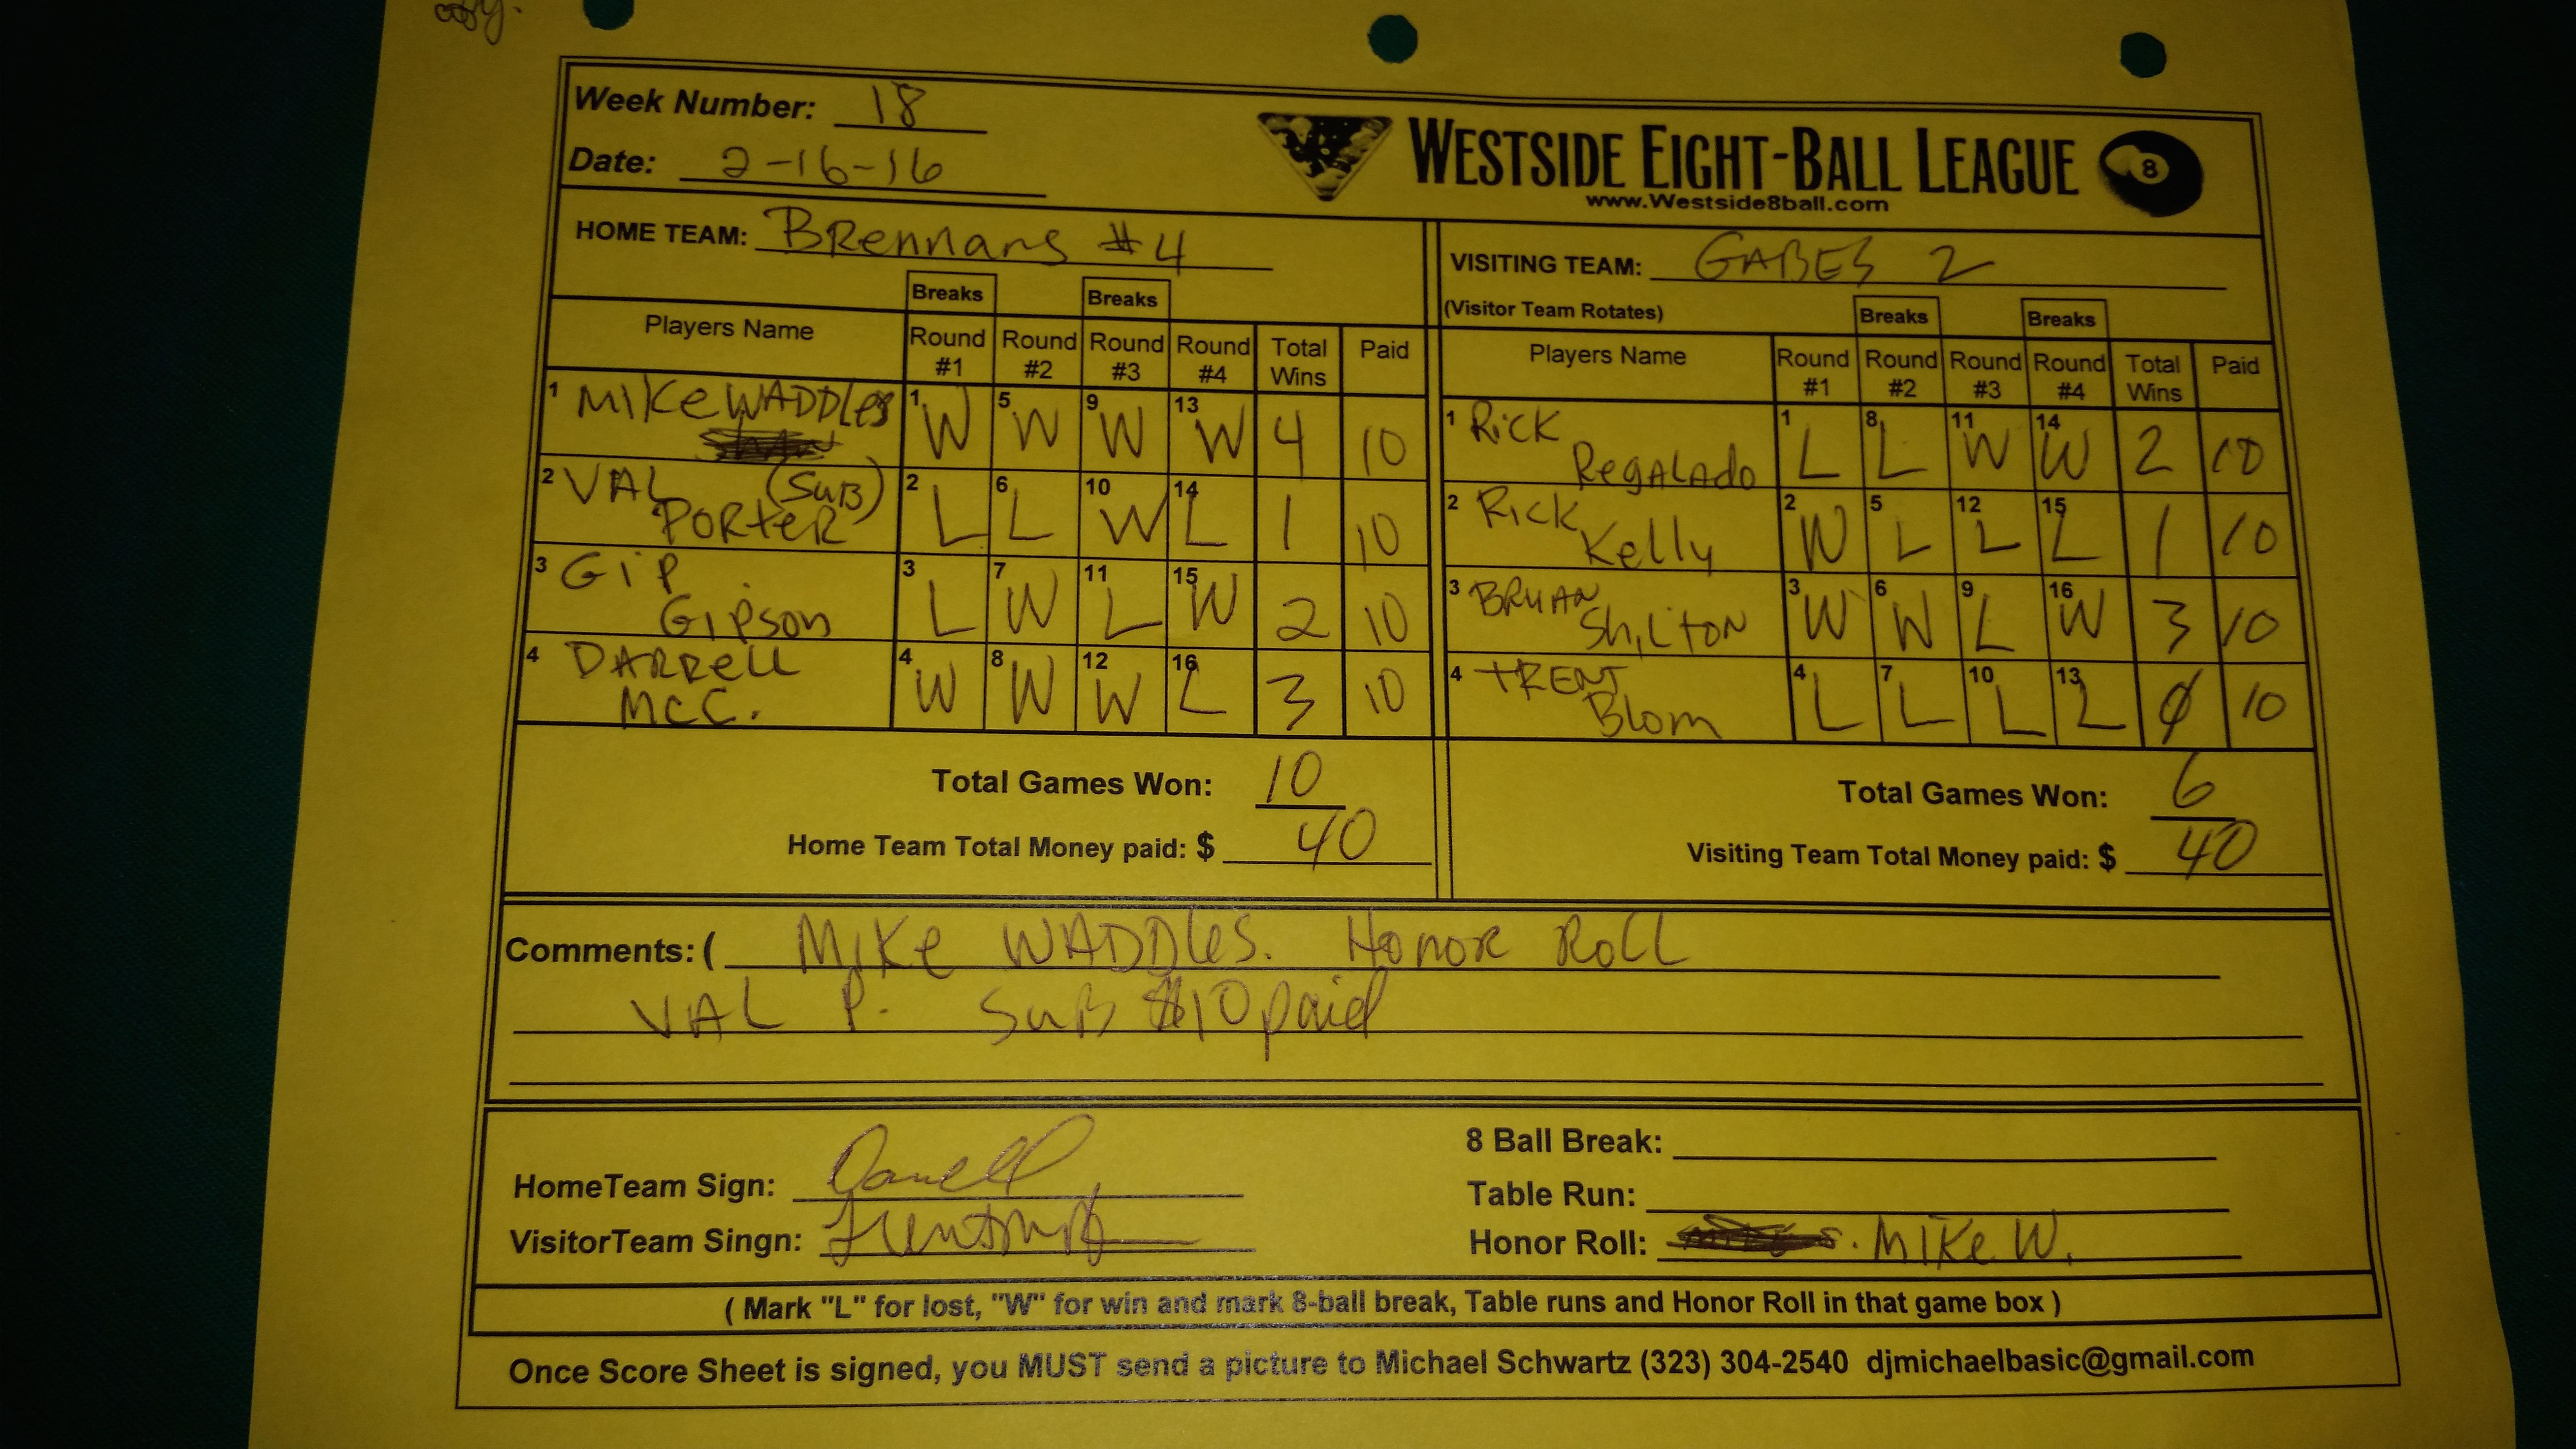 Week Number: 18
Date: 2-16-16
WESTSIDE EIGHT-BALL LEAGUE 8
www.Westside8ball.com
HOME TEAM: BRennans #4
VISITING TEAM: GABES 2
(Visitor Team Rotates)
Breaks Breaks Breaks Breaks
Players Name Round #1 Round #2 Round #3 Round #4 Total Wins Paid
1 MIKE WADDLES 1 W 5 W 9 W 13 W 4 10
2 VAL PORTER (SUB) 2 L 6 L 10 W 14 L 1 10
3 GiP GiPson 3 L 7 W 11 L 15 W 2 10
4 DARRELL McC. 4 W 8 W 12 W 16 L 3 10
Players Name Round #1 Round #2 Round #3 Round #4 Total Wins Paid
1 Rick RegALAdo 1 L 8 L 11 W 14 W 2 10
2 Rick Kelly 2 W 5 L 12 L 15 L 1 10
3 BRYAN ShiLTON 3 W 6 W 9 L 16 W 3 10
4 TRENT Blom 4 L 7 L 10 L 13 L 0 10
Total Games Won: 10
Home Team Total Money paid: $ 40
Total Games Won: 6
Visiting Team Total Money paid: $ 40
Comments: ( MIKE WADDLES. Honor Roll
VAL P. SuB $10 paid
HomeTeam Sign: Darrell
VisitorTeam Singn:
8 Ball Break:
Table Run:
Honor Roll: MIKE W.
( Mark "L" for lost, "W" for win and mark 8-ball break, Table runs and Honor Roll in that game box )
Once Score Sheet is signed, you MUST send a picture to Michael Schwartz (323) 304-2540 djmichaelbasic@gmail.com